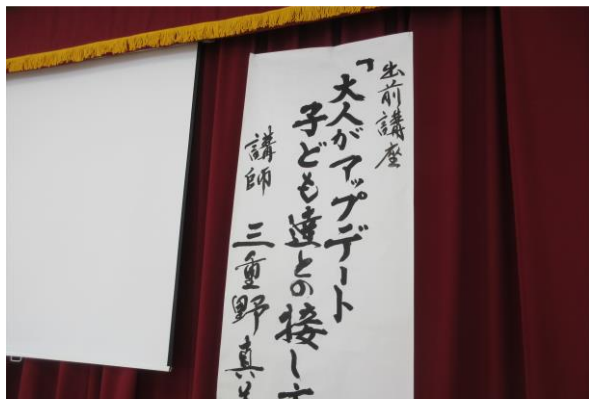 出前講座
「大人がアップデート
子ども達との接し
講師 三重野 真